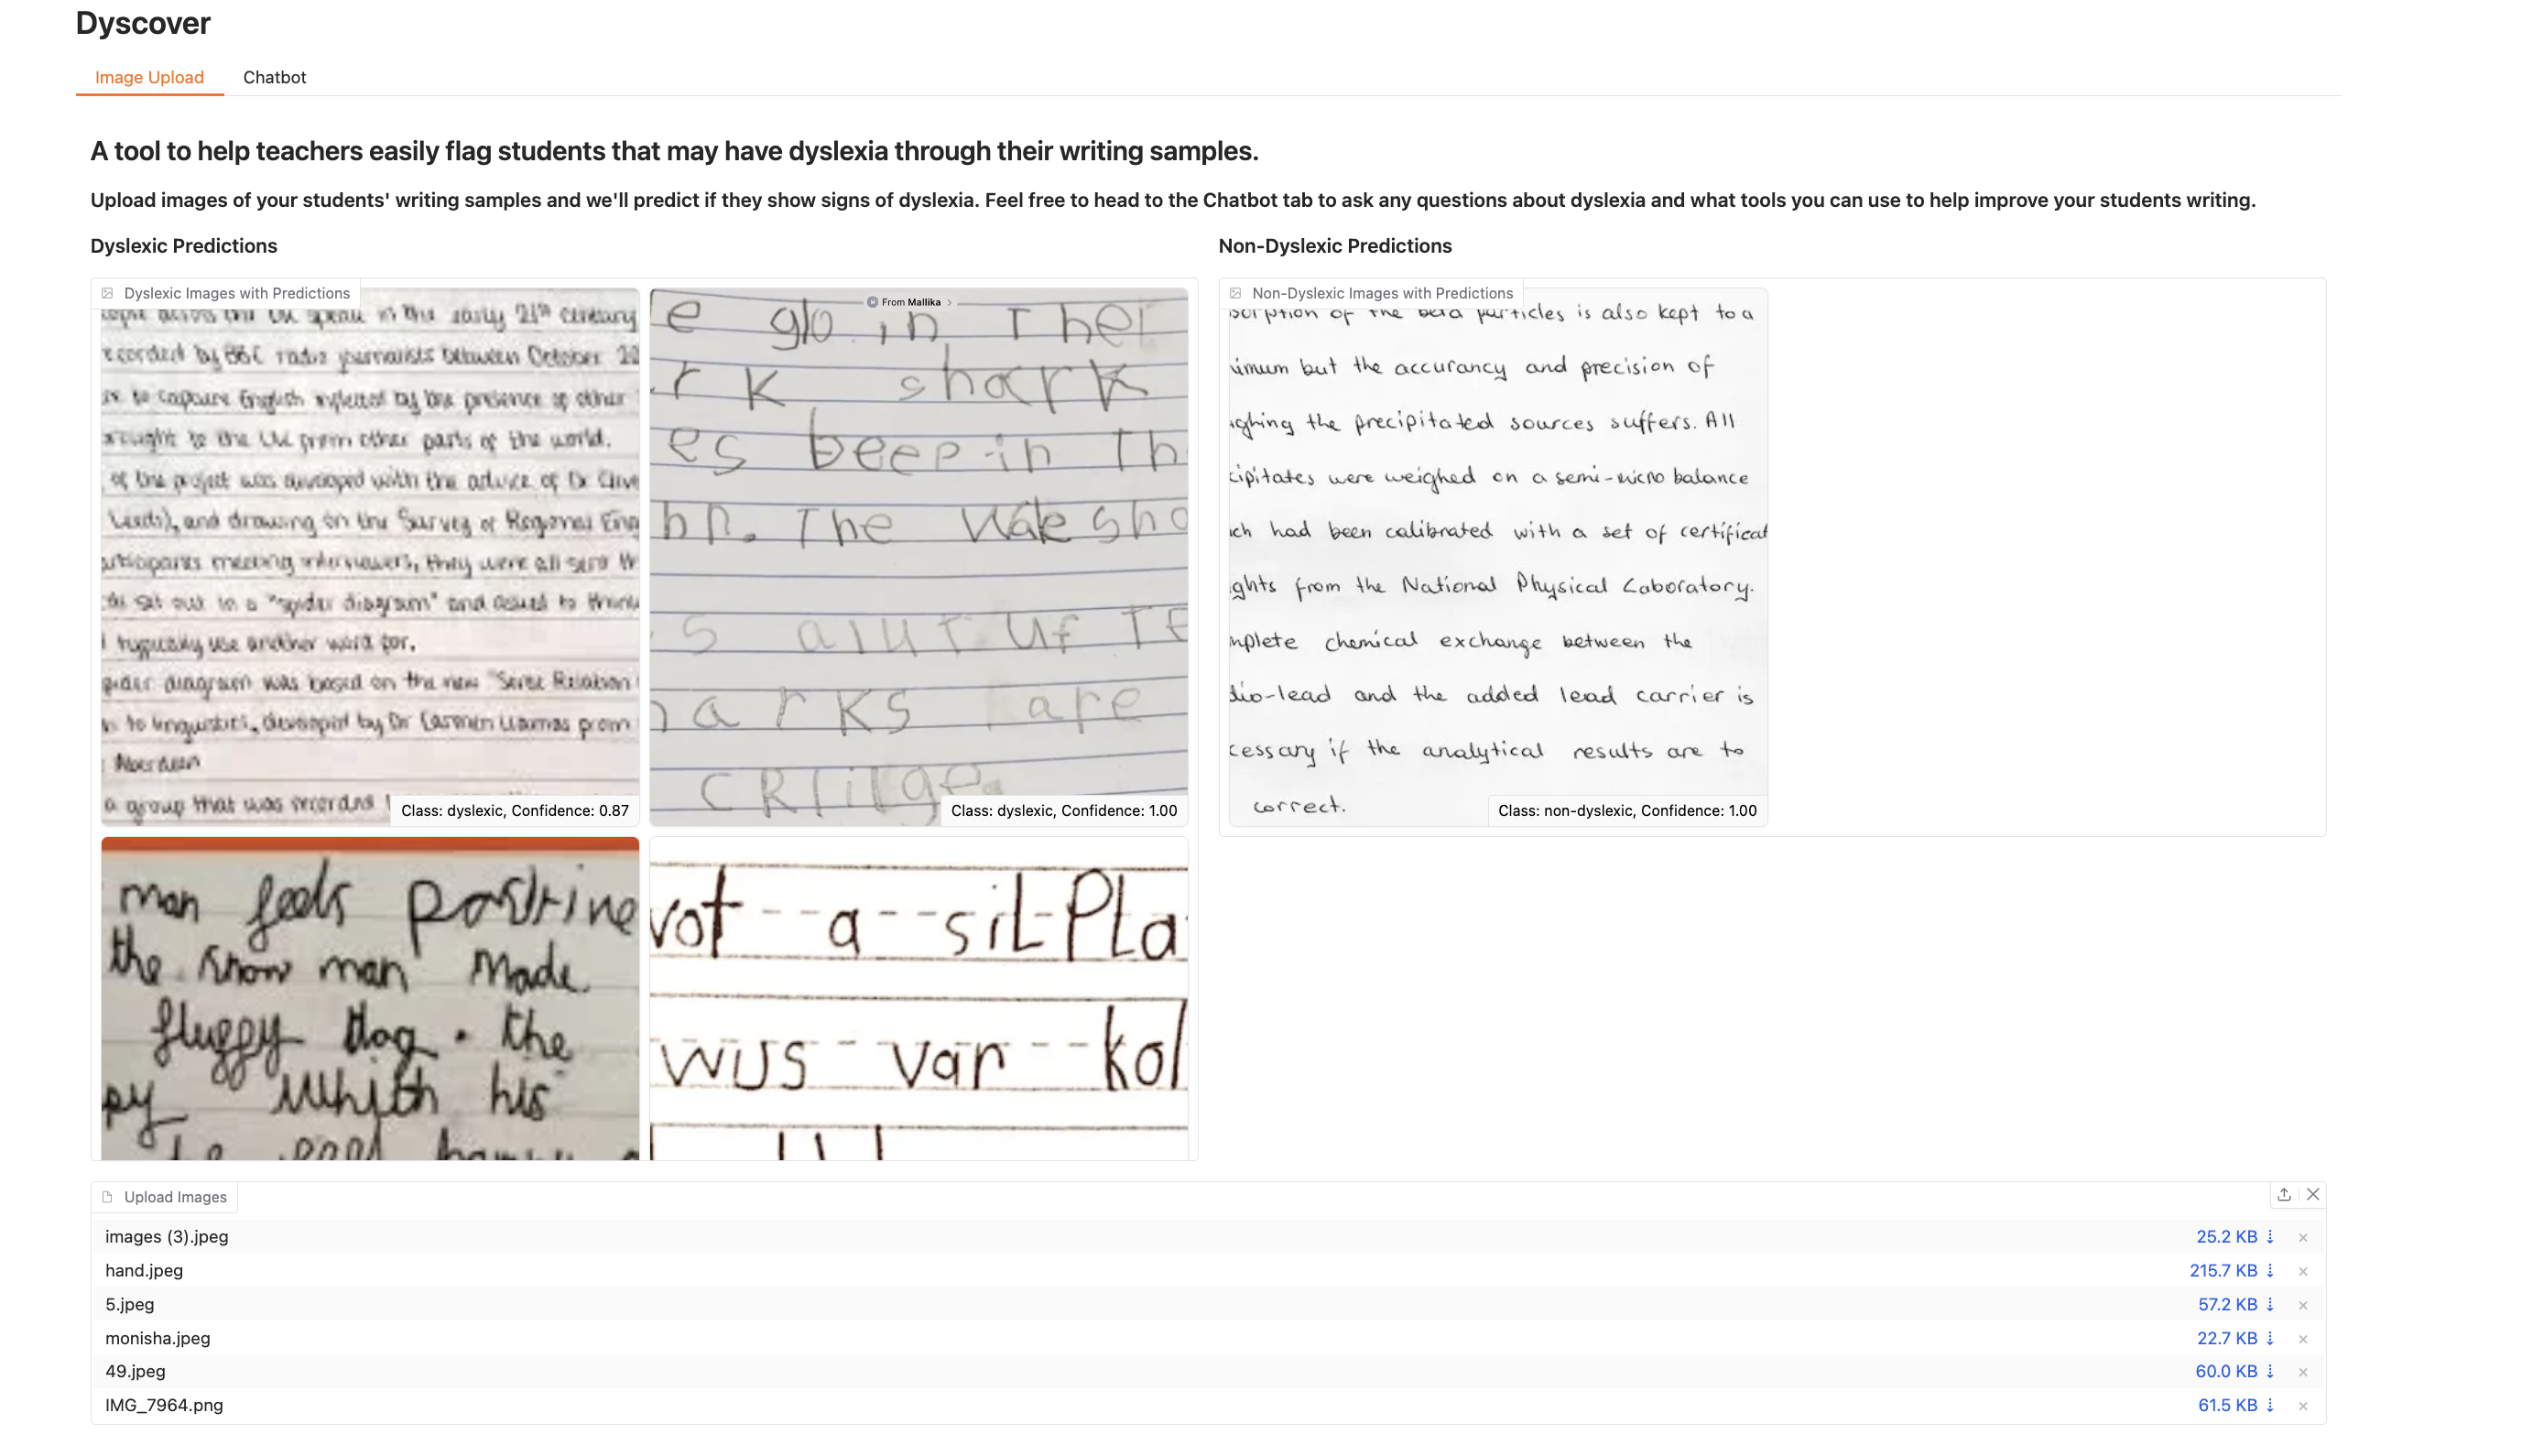 Dyscover
Image Upload Chatbot
A tool to help teachers easily flag students that may have dyslexia through their writing samples.
Upload images of your students' writing samples and we'll predict if they show signs of dyslexia. Feel free to head to the Chatbot tab to ask any questions about dyslexia and what tools you can use to help improve your students writing.
Dyslexic Predictions
Dyslexic Images with Predictions
in the early 21st century
recorded by BBC radio journalists between October 20
to capture English inflected by the presence of other
to the UK from other parts of the world.
of the project was developed with the advice of Dr Clive
Leeds), and drawing on the Survey of Regional Eng
meeting interviewers, they were all sent
set out in a "spider diagram" and asked to think
typically use another word for.
diagram was based on the new "Sense Relation
to linguistics, developed by Dr Carmen Llamas from
Aberdeen
a group that was recorded
Class: dyslexic, Confidence: 0.87
From Mallika >
e glo in The
rk shark
es beep in Th
hn. The Wake sho
s alut uf TE
arks are
Class: dyslexic, Confidence: 1.00
man feels
the snow man Made
fluffy dog. the
py Which his
vot a siLPLa
wus var kol
Non-Dyslexic Predictions
Non-Dyslexic Images with Predictions
sorption of the beta particles is also kept to a
imum but the accurancy and precision of
ighing the precipitated sources suffers. All
cipitates were weighed on a semi-micro balance
ich had been calibrated with a set of certificat
ights from the National Physical Laboratory.
mplete chemical exchange between the
dio-lead and the added lead carrier is
cessary if the analytical results are to
correct.
Class: non-dyslexic, Confidence: 1.00
Upload Images
images (3).jpeg 25.2 KB ⇣ ×
hand.jpeg 215.7 KB ⇣ ×
5.jpeg 57.2 KB ⇣ ×
monisha.jpeg 22.7 KB ⇣ ×
49.jpeg 60.0 KB ⇣ ×
IMG_7964.png 61.5 KB ⇣ ×